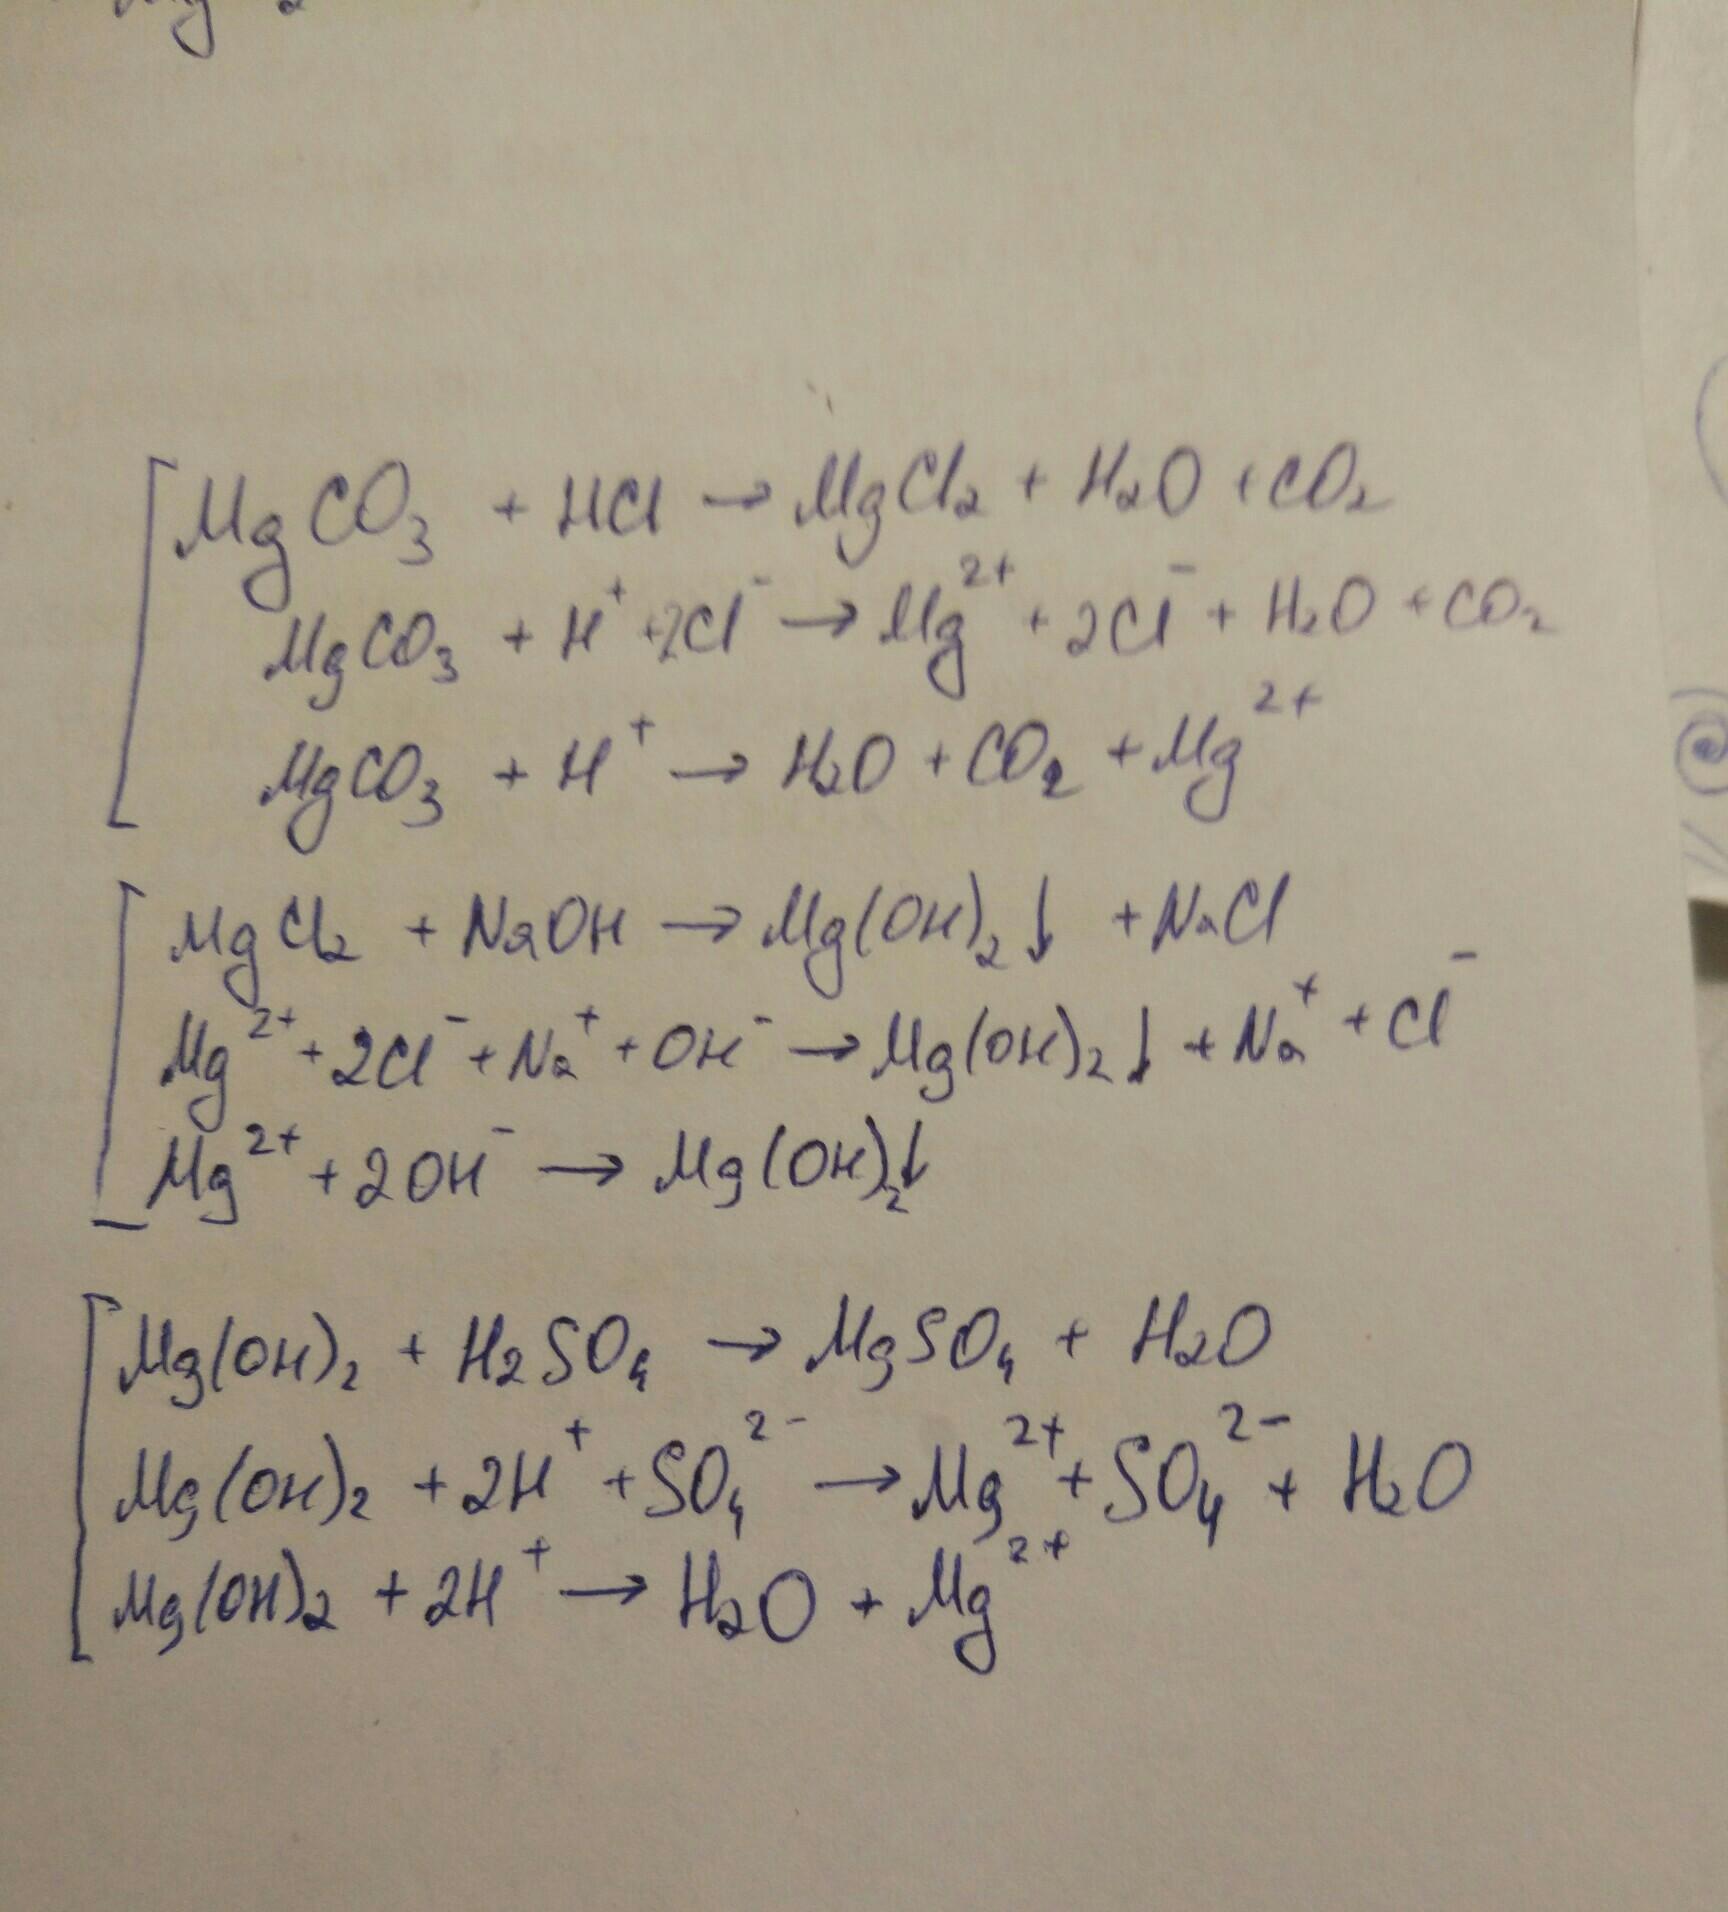 MgCO₃ + HCl → MgCl₂ + H₂O + CO₂
MgCO₃ + H⁺ + 2Cl⁻ → Mg²⁺ + 2Cl⁻ + H₂O + CO₂
MgCO₃ + H⁺ → H₂O + CO₂ + Mg²⁺
MgCl₂ + NaOH → Mg(OH)₂↓ + NaCl
Mg²⁺ + 2Cl⁻ + Na⁺ + OH⁻ → Mg(OH)₂↓ + Na⁺ + Cl⁻
Mg²⁺ + 2OH⁻ → Mg(OH)₂↓
Mg(OH)₂ + H₂SO₄ → MgSO₄ + H₂O
Mg(OH)₂ + 2H⁺ + SO₄²⁻ → Mg²⁺ + SO₄²⁻ + H₂O
Mg(OH)₂ + 2H⁺ → H₂O + Mg²⁺